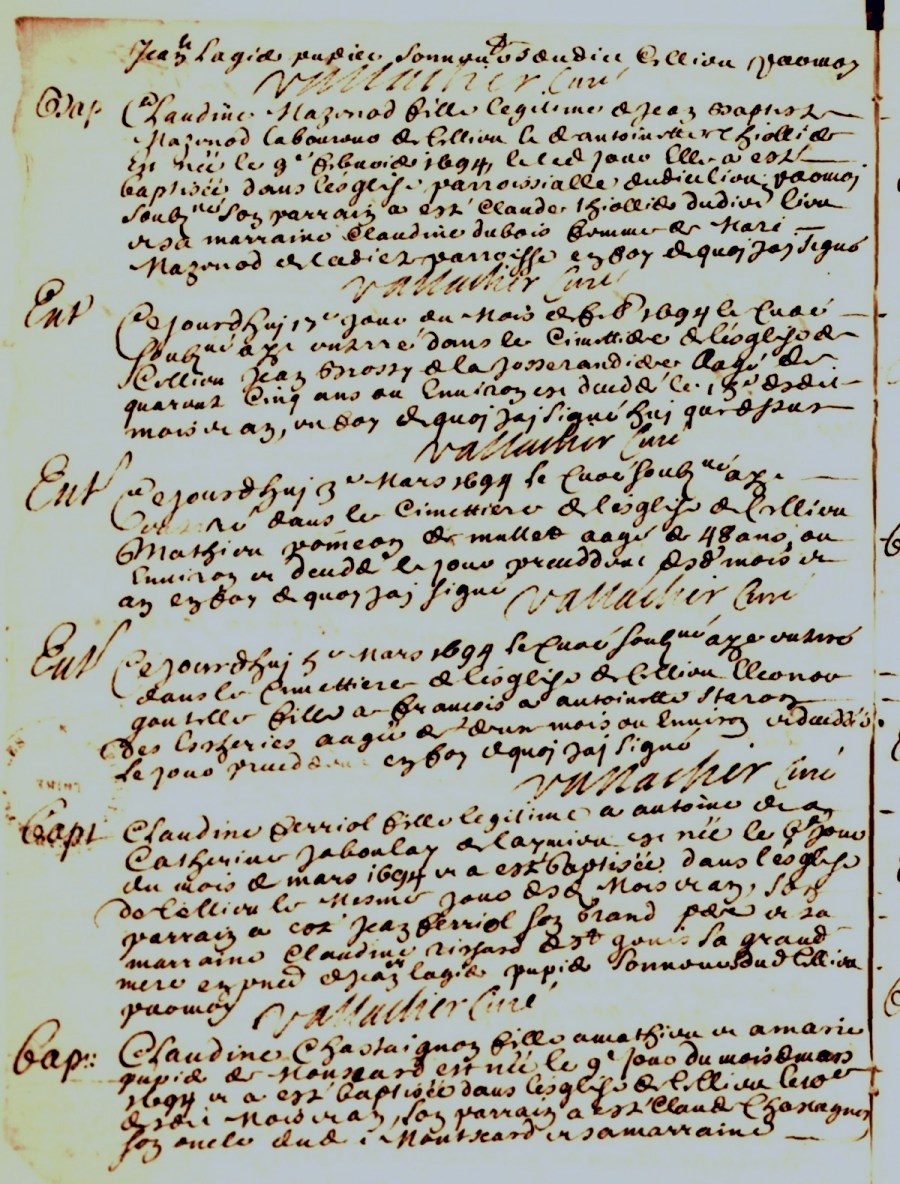 Jean Lagie pupier sonneur dudict Cellieu par moy
Vallachier Curé
Bap Claudine Mazenod fille legitime de Jean Baptiste
Mazenod laboureur de Cellieu et de antoinette thiollide
est née le 9e febvrie 1694 le led jour Elle a est
baptisée dans l'esglise parroissialle dudict lieu par moj
soubne son parrain a est Claude thiollide dudict lieu
et sa marraine Claudine dubois femme de Mari
Mazenod de ladict parroisse en foy de quoj jaj signé
Vallachier Curé
Ent Ce jourdhuj 17e jour du Mois de feb 1694 le Curé
soubne aye enterré dans le Cimettiere de l'esglise de
Cellieu Jean brossy de la Josserandide aagé de
quarant Cinq ans ou Environ est décédé le 15e desdit
mois et an, en foy de quoj jaj signé huj que dessus
Vallachier Curé
Ent Ce jourdhuj 3e Mars 1694 le Curé soubne aye
enterré dans le Cimettiere de l'esglise de Cellieu
Mathieu pomeon de mullet aagé de 48 ans, ou
Environ et décédé le jour precedent desd mois et
an en foy de quoj jaj signé Vallachier Curé
Ent Ce jourdhuj 5e Mars 1694 le Curé soubne aye enterré
dans le Cimettiere de l'esglise de Cellieu Eleonor
goutelle fille a francois a antoinette staron
des Escheries aagée de deux mois ou Environ et décédée
le jour precedent en foy de quoj jaj signé
Vallachier Curé
bapt Claudine ferriol fille legitime a antoine et a
Catherine Jaboulay de laymieu est née le 6e jour
du mois de mars 1694 et a est baptisée dans l'esglise
de Cellieu le Mesme jour desd Mois et an, son
parrain a est Jean ferriol son Grand pere et sa
marraine Claudine rissoard de st genis sa grand
mere en pnce de Jean lagie pupie sonneur dud Cellieu
par moy Vallachier Curé
bap: Claudine Chastaignon fille a mathieu et a marie
pupie de Monteard est née le 9e jour du mois de mars
1694 et a est baptisée dans l'esglise de Cellieu le 10e
desdit Mois et an, son parrain a est Claude Chasagnon
son oncle dudi Montseard et sa marraine